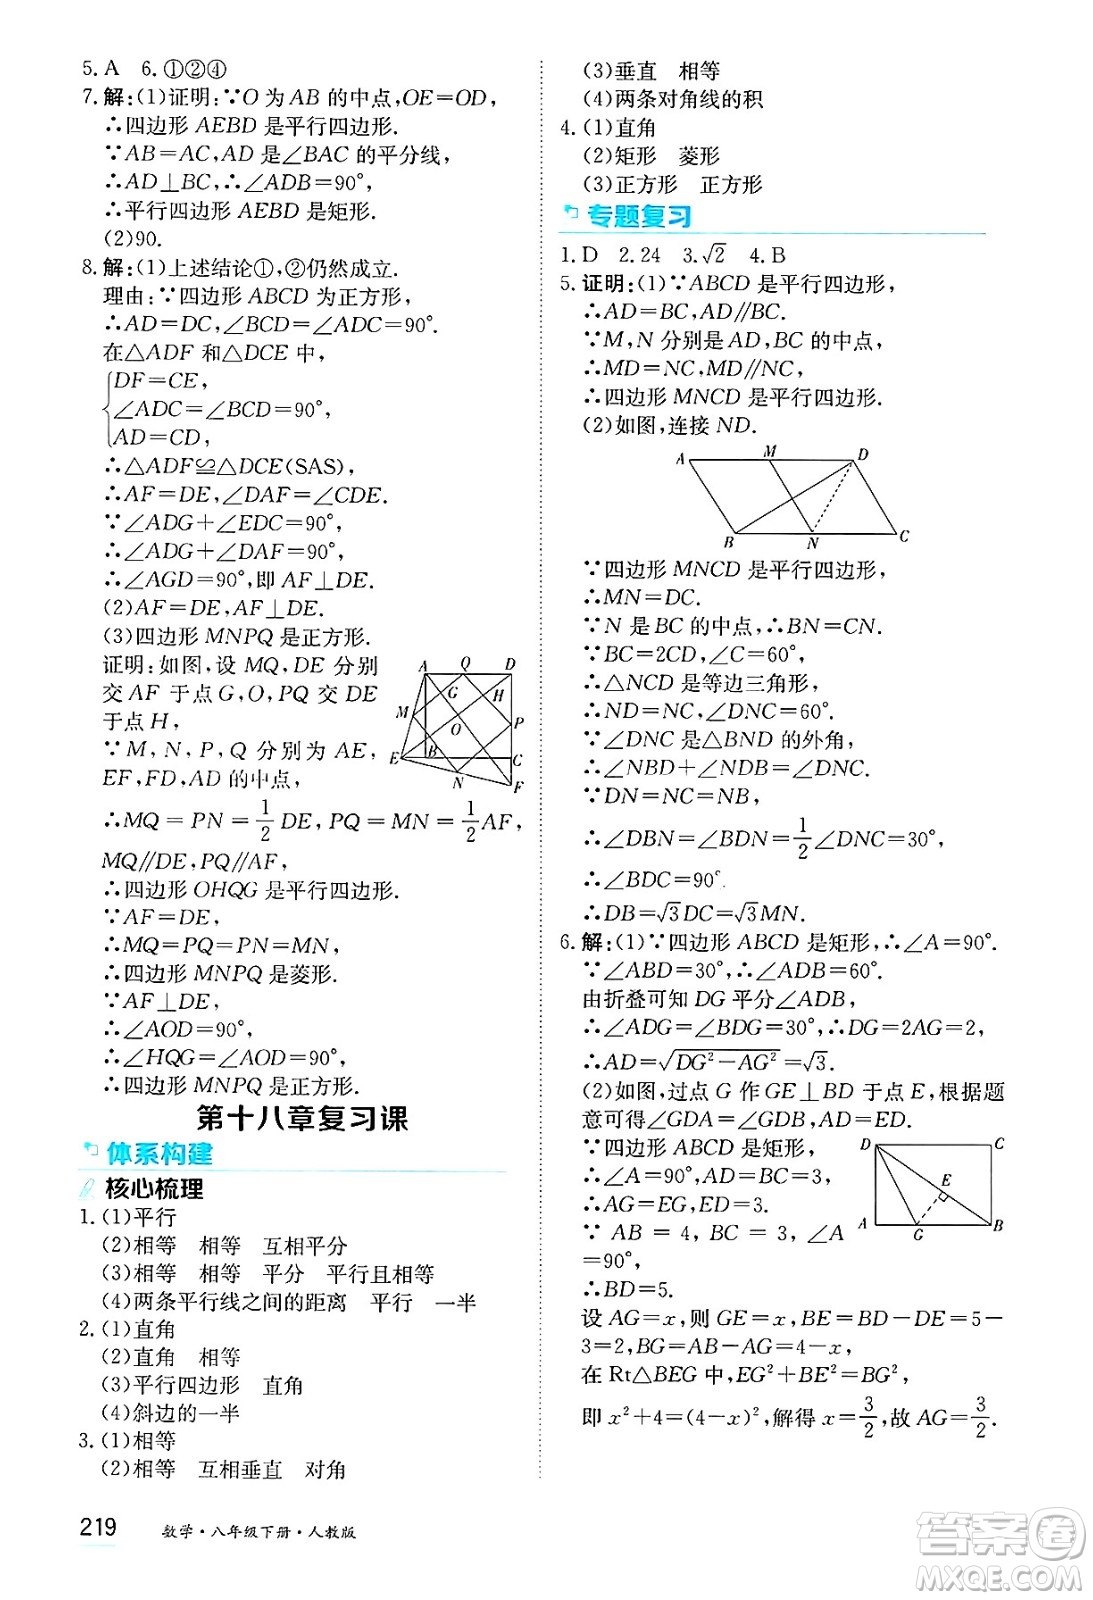 5. A　6. ①②④
7. 解:(1)证明:∵O 为 AB 的中点,OE=OD,
∴四边形 AEBD 是平行四边形.
∵AB=AC,AD 是∠BAC 的平分线,
∴AD⊥BC,∴∠ADB=90°,
∴平行四边形 AEBD 是矩形.
(2)90.
8. 解:(1)上述结论①,②仍然成立.
理由:∵四边形 ABCD 为正方形,
∴AD=DC,∠BCD=∠ADC=90°.
在△ADF 和△DCE 中,
DF=CE,
∠ADC=∠BCD=90°,
AD=CD,
∴△ADF≌△DCE(SAS),
∴AF=DE,∠DAF=∠CDE.
∵∠ADG+∠EDC=90°,
∴∠ADG+∠DAF=90°,
∴∠AGD=90°,即 AF⊥DE.
(2)AF=DE,AF⊥DE.
(3)四边形 MNPQ 是正方形.
证明:如图,设 MQ,DE 分别
交 AF 于点 G,O,PQ 交 DE
于点 H,
∵M,N,P,Q 分别为 AE,
EF,FD,AD 的中点,
A Q D
G H
M P
O
E B C
N F
∴MQ=PN=1/2 DE,PQ=MN=1/2 AF,
MQ∥DE,PQ∥AF,
∴四边形 OHQG 是平行四边形.
∵AF=DE,
∴MQ=PQ=PN=MN,
∴四边形 MNPQ 是菱形.
∵AF⊥DE,
∴∠AOD=90°,
∴∠HQG=∠AOD=90°,
∴四边形 MNPQ 是正方形.
第十八章复习课
体系构建
核心梳理
1. (1)平行
(2)相等　相等　互相平分
(3)相等　相等　平分　平行且相等
(4)两条平行线之间的距离　平行　一半
2. (1)直角
(2)直角　相等
(3)平行四边形　直角
(4)斜边的一半
3. (1)相等
(2)相等　互相垂直　对角
(3)垂直　相等
(4)两条对角线的积
4. (1)直角
(2)矩形　菱形
(3)正方形　正方形
专题复习
1. D　2. 24　3. √2　4. B
5. 证明:(1)∵ABCD 是平行四边形,
∴AD=BC,AD∥BC.
∵M,N 分别是 AD,BC 的中点,
∴MD=NC,MD∥NC,
∴四边形 MNCD 是平行四边形.
(2)如图,连接 ND.
A M D
B N C
∵四边形 MNCD 是平行四边形,
∴MN=DC.
∵N 是 BC 的中点,∴BN=CN.
∵BC=2CD,∠C=60°,
∴△NCD 是等边三角形,
∴ND=NC,∠DNC=60°.
∵∠DNC 是△BND 的外角,
∴∠NBD+∠NDB=∠DNC.
∵DN=NC=NB,
∴∠DBN=∠BDN=1/2∠DNC=30°,
∴∠BDC=90°.
∴DB=√3DC=√3MN.
6. 解:(1)∵四边形 ABCD 是矩形,∴∠A=90°.
∵∠ABD=30°,∴∠ADB=60°.
由折叠可知 DG 平分∠ADB,
∴∠ADG=∠BDG=30°,∴DG=2AG=2,
∴AD=√(DG²-AG²)=√3.
(2)如图,过点 G 作 GE⊥BD 于点 E,根据题
意可得∠GDA=∠BDG,DA=ED.
∵四边形 ABCD 是矩形,
∴∠A=90°,AD=BC=3,
∴AG=EG,ED=3.
∵AB=4,BC=3,∠A
=90°,
∴BD=5.
D C
E
A G B
设 AG=x,则 GE=x,BE=BD-DE=5-
3=2,BG=AB-AG=4-x,
在 Rt△BEG 中,EG²+BE²=BG²,
即 x²+4=(4-x)²,解得 x=3/2,故 AG=3/2.
219　数学·八年级下册·人教版
答案圈
MXQE.COM